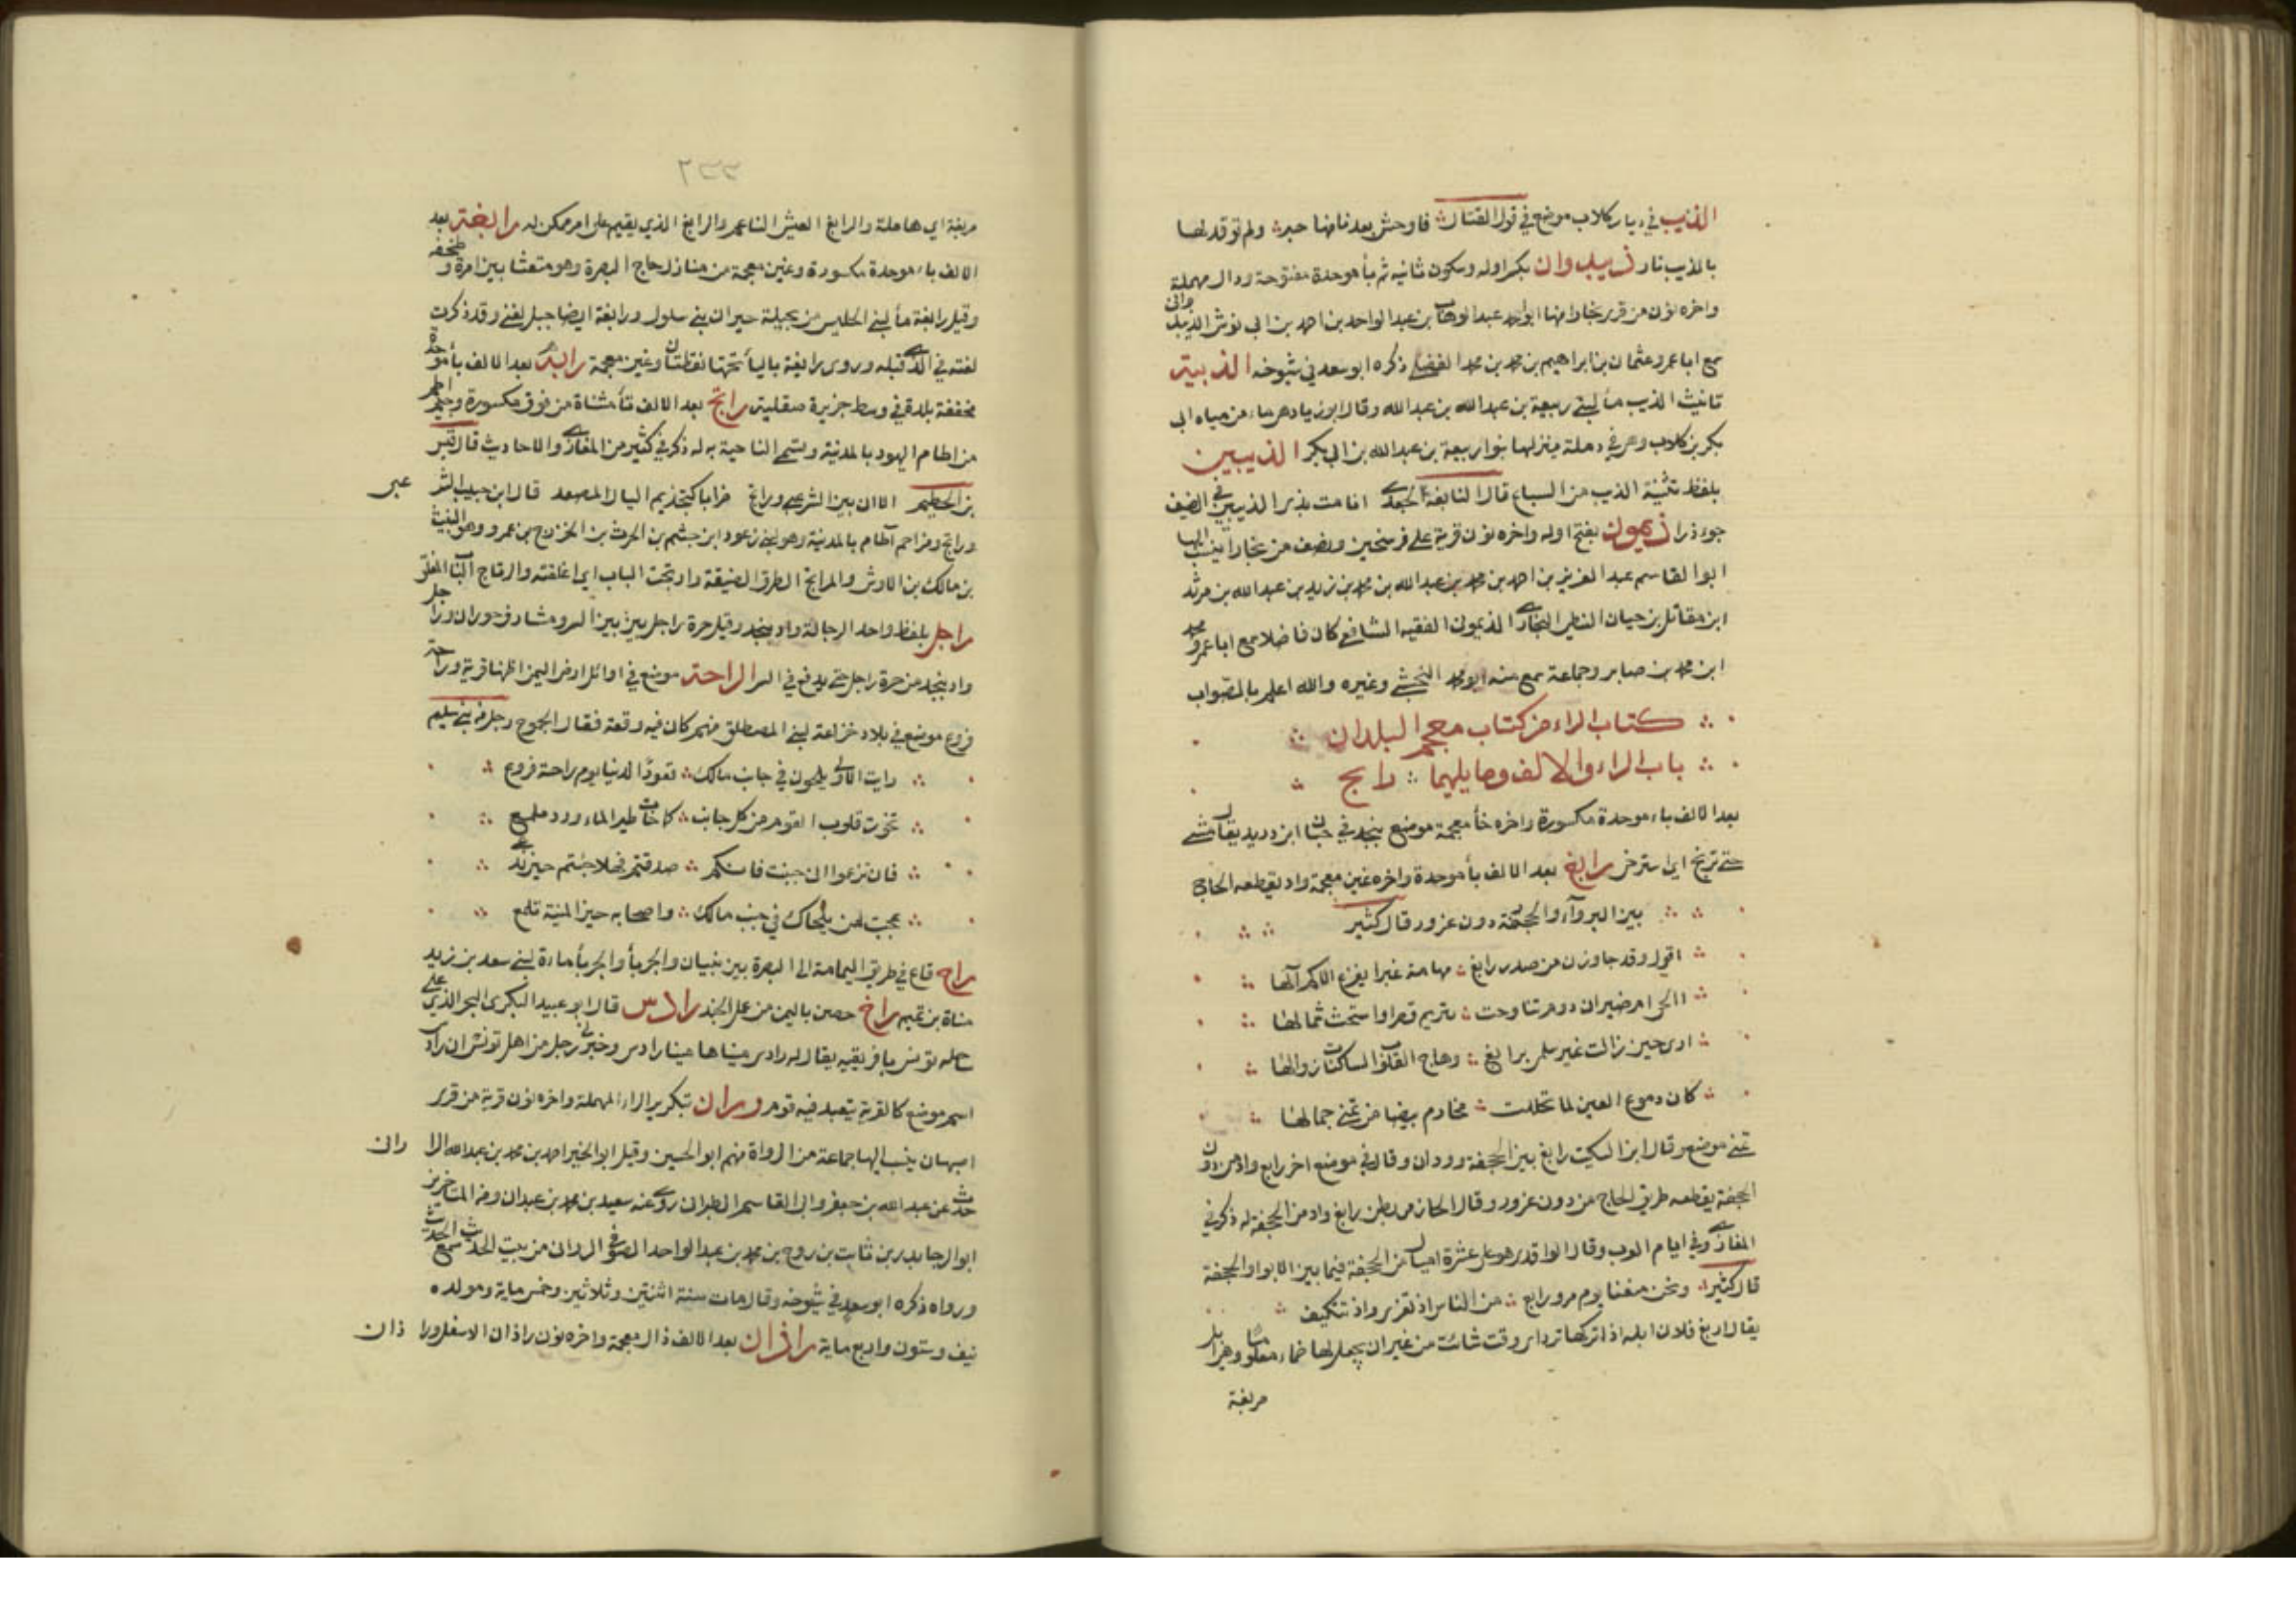 الذيب في ديار كلاب موضع في قول القتال فاوحش بعدنا منها حبر ولم توقد لها
بالذيب نار ذيبدوان بكسر اوله وسكون ثانيه ثم بأ موحدة مفتوحة ودال مهملة
واخره نون من قرى بخارا منها ابو احمد عبد الوهاب بن عبد الواحد بن احمد بن ابي نوش الذيبدواني
سمع ابا عمرو عثمان بن ابراهيم بن محمد بن محمد الفضلي ذكره ابو سعد في شيوخه الذيبة
تانيث الذيب مأ لبني ربيعة بن عبد الله بن عبد الله وقال ابو زياد هي ماء من مياه ابي
بكر بن كلاب وهي في رملة ينزلها بنو ربيعة بن عبد الله بن ابي بكر الذيبين
بلفظ تثنية الذيب من السباع قال النابغة الجعدي اقامت بذي الذيبين في الصيف
جوءذرا ذيمون بفتح اوله واخره نون قرية على فرسخين ونصف من بخارا ينسب اليها
ابو القاسم عبد العزيز بن احمد بن محمد بن عبد الله بن محمد بن زيد بن عبد الله بن مرثد
ابن مقاتل بن حيان النبطي البخاري الذيموني الفقيه الشافعي كان فاضلا سمع ابا عمرو محمد
ابن محمد بن صابر وجماعة سمع منه ابو محمد النخشبي وغيره والله اعلم بالصواب
كتاب الراء من كتاب معجم البلدان
باب الراء والالف وما يليهما رابح
بعد الالف باء موحدة مكسورة واخره خأ معجمة موضع بنجد في حسبان ابن دريد يقال مشى
حتى تربخ اي استرخى رابغ بعد الالف بأ موحدة واخره غين معجمة واد يقطعه الحاج
بين البزوآء والجحفة دون عزور قال كثير
اقول وقد جاوزن من صدر رابغ مهامه غبرا يفزع الاكم آلها
االحي ام صيران دوم تناوحت بتريم قصرا واستحثت شمالها
ارى حين زالت غير سلمى برابغ وهاج القلوب الساكنات زوالها
كان دموع العين لما تخللت مخارم بيضا من تمني جمالها
تمنى موضع وقال ابن السكيت رابغ بين الجحفة وودان وقال في موضع اخر رابغ واد من دون
الجحفة يقطعه طريق الحاج من دون عزور وقال الحازمي بطن رابغ واد من الجحفة له ذكر في
المغازي وفي ايام العرب وقال الواقدي هو على عشرة اميال من الجحفة فيما بين الابوا والجحفة
قال كثير ونحن منعنا يوم مر ورابغ من الناس ان تغزى وان تتكنف
يقال اربغ فلان ابله اذا تركها ترد اي وقت شاءت من غير ان يجعل لها ظماء معلوما وهي ابل
مربغة
مربغة اي هاملة والرابغ العيش الناعم والرابغ الذي يقيم على امر ممكن له رابغة بعد
الالف باء موحدة مكسورة وغين معجمة من منازل حاج البصرة وهو متعشا بين امرة وطخفة
وقيل رابغة مأ لبني الحليس من بجيلة جيران بني سلول ورابغة ايضا جبل لغني وقد ذكرت
لغته في الذي قبله وروى رايغة باليأ تحتها نقطتان وغين معجمة رابة بعد الالف بأ موحدة
مخففة بلدة في وسط جزيرة صقلية راتج بعد الالف تأ مثناة من فوق مكسورة وجيم اطم
من اطام اليهود بالمدينة وتسمى الناحية به له ذكر في كثير من المغازي والاحاديث قال قيس
بن الخطيم الا ان بين الشرعبي وراتج ضرابا كتجذيم السيال المصعد قال ابن حبيب الشرعبي
وراتج ومزاحم آطام بالمدينة وهو لبني زعورا بن جشم بن الحرث بن الخزرج بن عمرو وهو النبيت
بن مالك بن الاوس والمراتج الطرق الضيقة وارتجت الباب اي اغلقته والرتاج الباب المغلق
راجل بلفظ واحد الرجالة واد بنجد وقيل حرة راجل بين السر ومشارف حوران وراجل
واد ينجد من حرة راجل حتى يدفع في السر الراحة موضع في اوائل ارض اليمن اظنها قرية وراحة
فروع موضع في بلاد خزاعة لبني المصطلق منهم كان فيه وقعة فقال الجموح رجل من بني سليم
رايت الاولى يلحون في جانب مالك قعودا لدينا يوم راحة فروع
تخوت قلوب القوم من كل جانب كما خات طير الماء ورد ملمع
فان تزعموا اني جبنت فانكم صدقتم فهلا جئتم حين ندعي
عجبت لمن يلحاك في جنب مالك واصحابه حين المنية تلمع
راح قاع في طريق اليمامة الى البصرة بين بنبان والجربأ والجربأ ماءة لبني سعد بن زيد
مناة بن تميم راخ حصن باليمن من عمل الجند رادس قال ابو عبيد البكري البحر الذي على
ساحله تونس بافريقيه يقال له رادس ميناها مينا رادس وخبرني رجل من اهل تونس ان رادس
اسم موضع كالقرية يتعبد فيه قوم وراران بتكرير الراء المهملة واخره نون قرية من قرى
اصبهان ينسب اليها جماعة من الرواة منهم ابو الحسين وقيل ابو الخير احمد بن محمد بن عبد الله الراراني
حدث عن عبد الله بن جعفر وابي القاسم الطبراني روى عنه سعيد بن محمد بن عبدان ومن المتاخرين
ابو الرجا بدر بن ثابت بن روح بن محمد بن عبد الواحد الصوفي الراراني من بيت الحديث سمع الحديث
ورواه ذكره ابو سعد في شيوخه وقال مات سنة اثنتين وثلاثين وخمس ماية ومولده
نيف وستون واربع ماية راذان بعد الالف ذال معجمة واخره نون راذان الاسفل وراذان